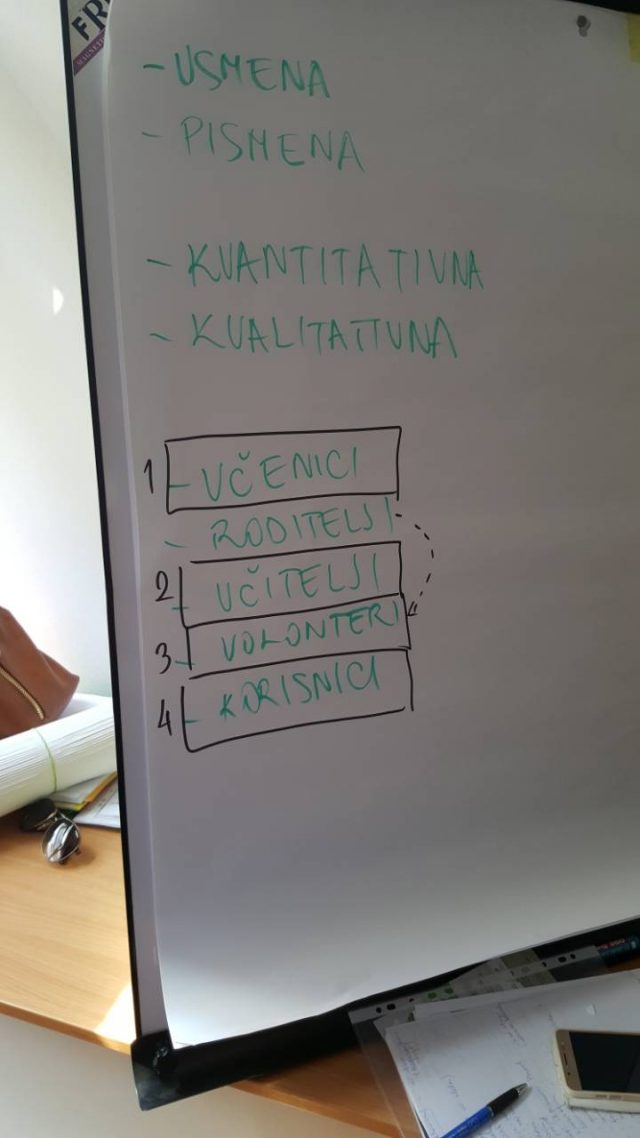 FR
- USMENA
- PISMENA
- KVANTITATIVNA
- KVALITATIVNA
1 - UČENICI
- RODITELJI
2 - UČITELJI
3 - VOLONTERI
4 - KORISNICI